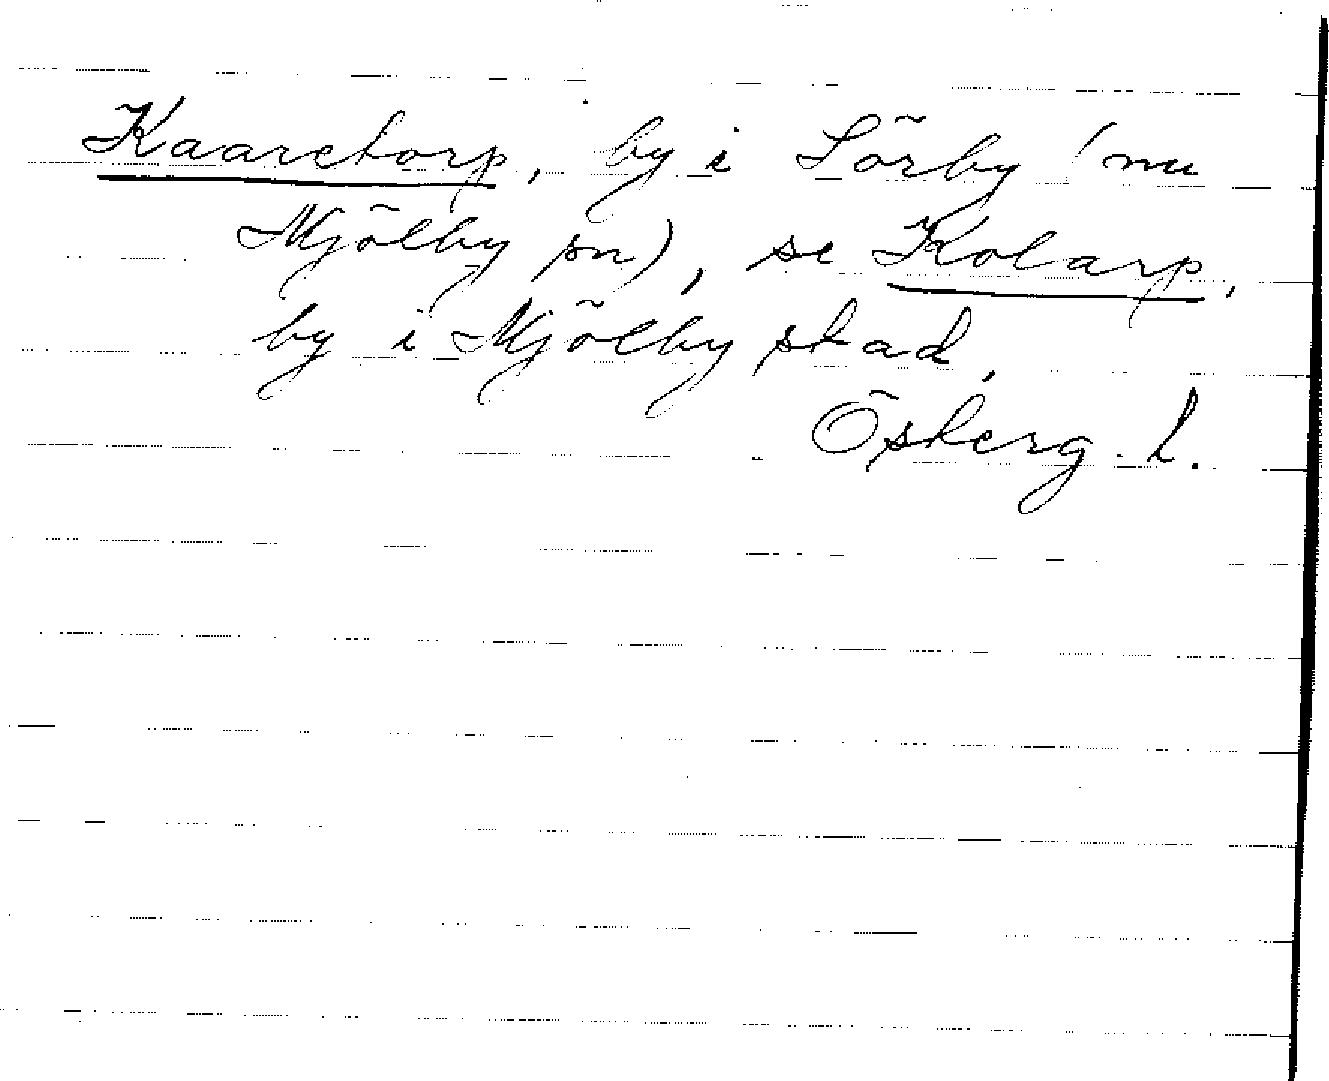 Kaaretorp, by i Sörby (nu
Mjölby sn), se Kolarp,
by i Mjölby stad,
Östergö. l.